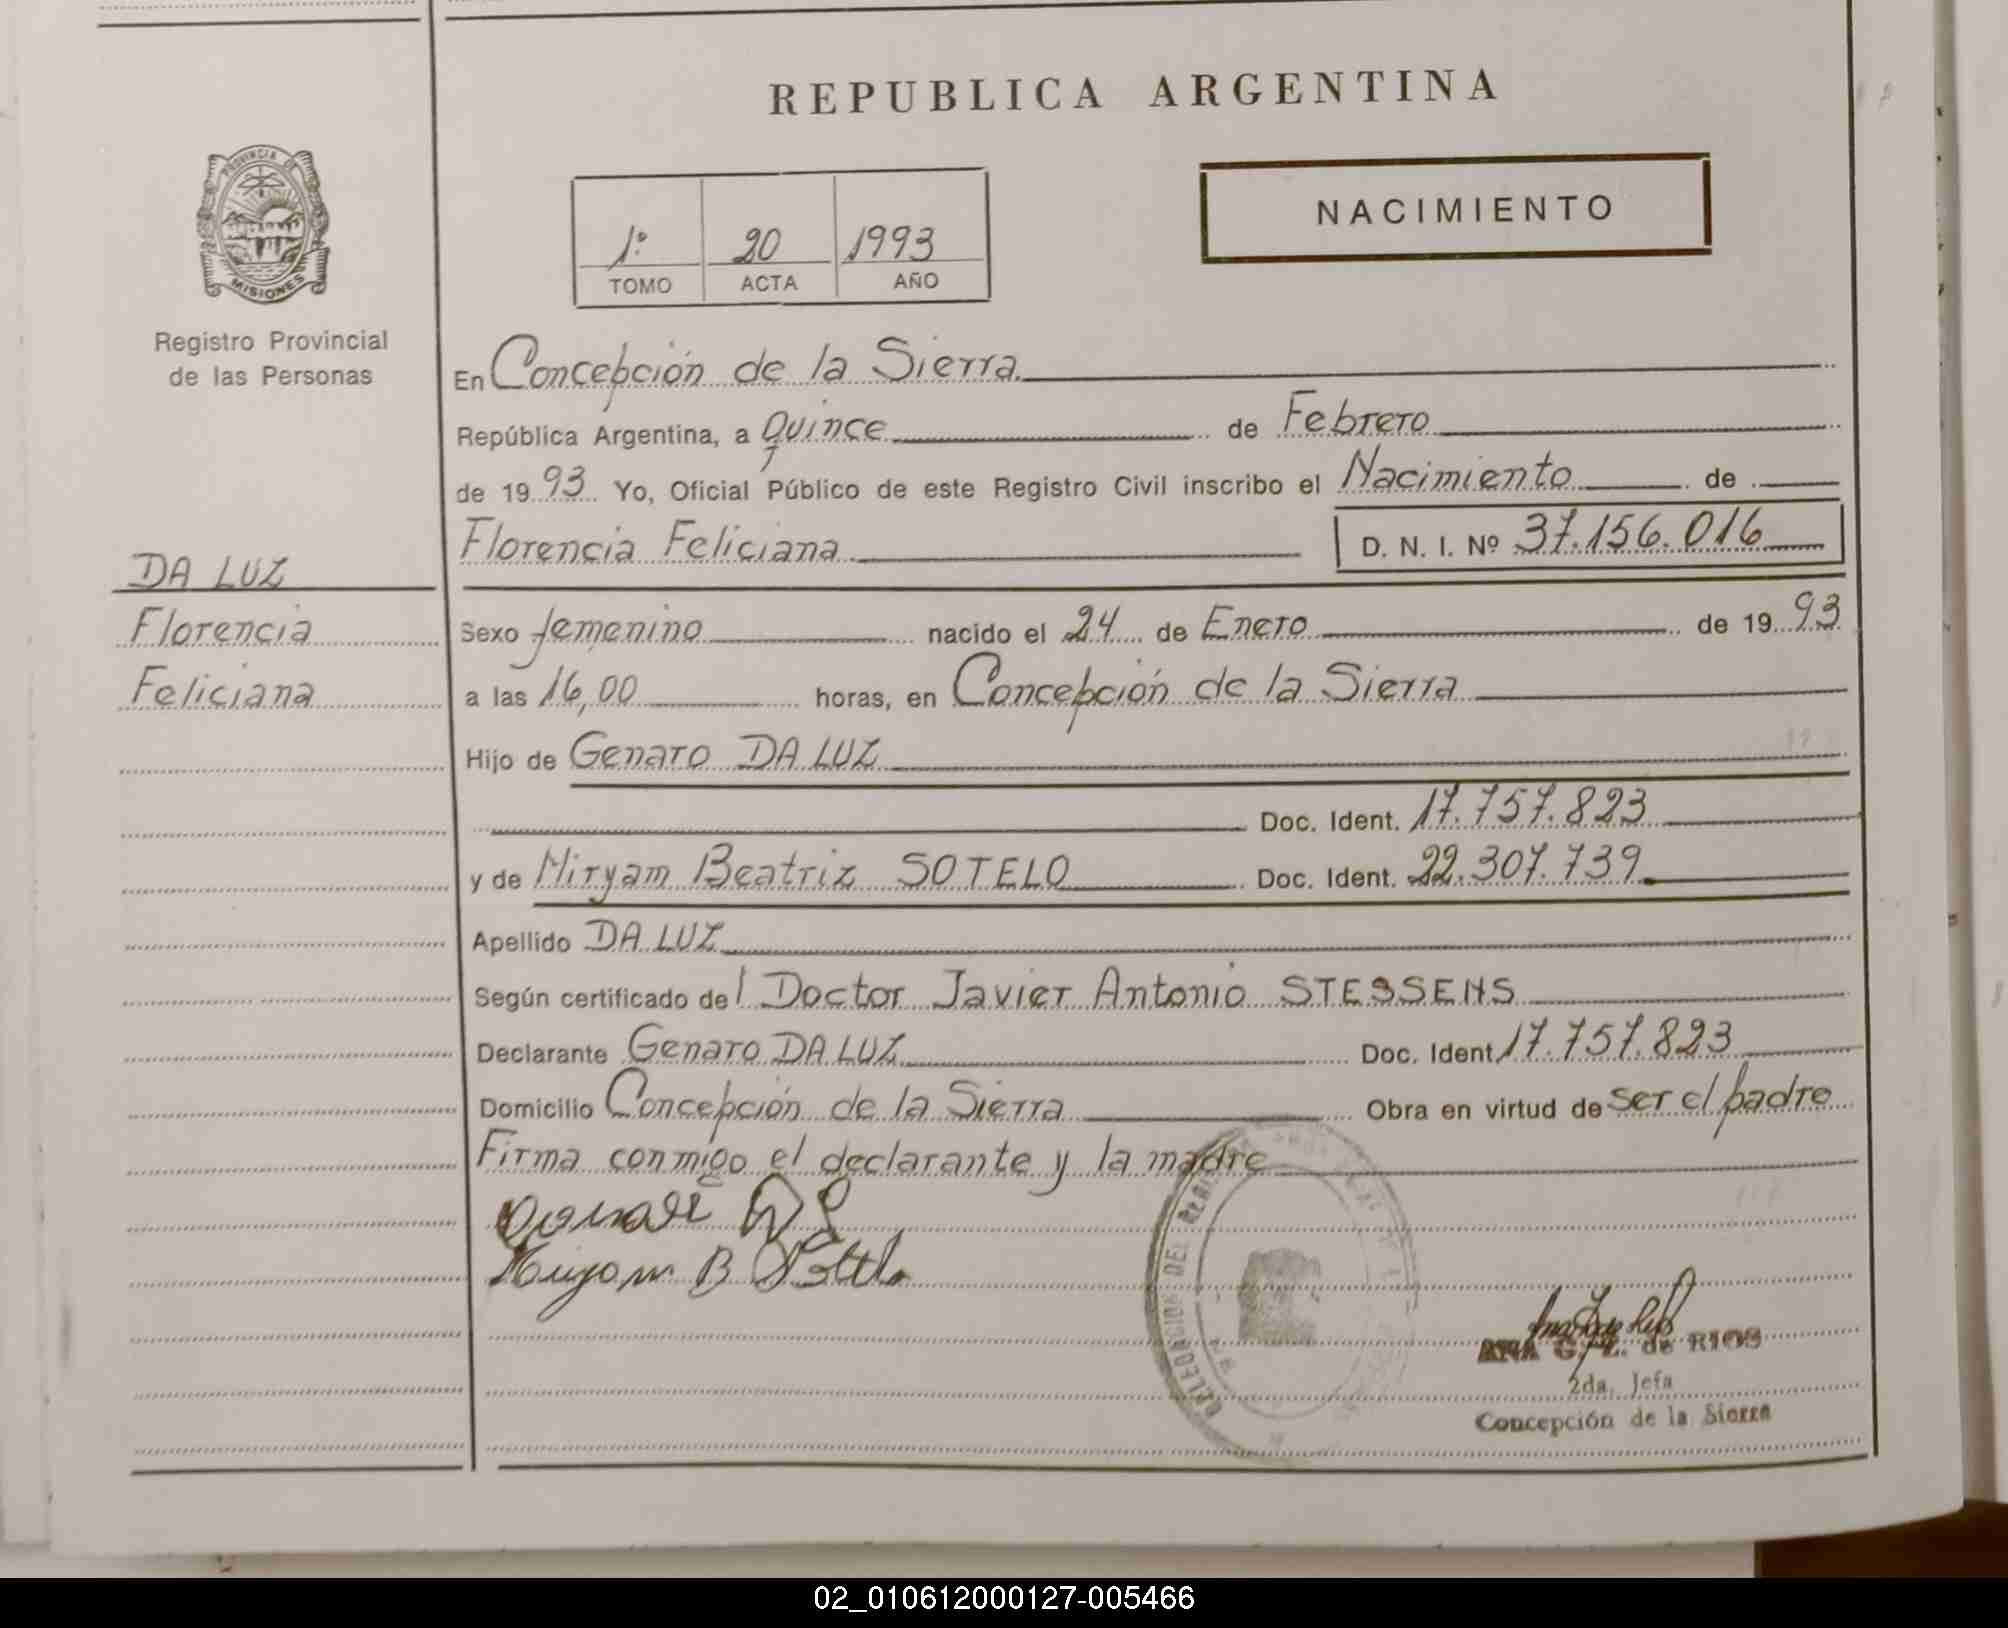 REPUBLICA ARGENTINA
PROVINCIA DE
MISIONES
Registro Provincial
de las Personas
NACIMIENTO
1º 20 1993
TOMO ACTA AÑO
En Concepción de la Sierra
República Argentina, a Quince de Febrero
de 1993 Yo, Oficial Público de este Registro Civil inscribo el Nacimiento de
Florencia Feliciana D. N. I. Nº 37.156.016
DA LUZ
Florencia
Feliciana
Sexo femenino nacido el 24 de Enero de 1993
a las 16,00 horas, en Concepción de la Sierra
Hijo de Genaro DA LUZ
Doc. Ident. 17.757.823
y de Miryam Beatriz SOTELO Doc. Ident. 22.307.739
Apellido DA LUZ
Según certificado del Doctor Javier Antonio STESSENS
Declarante Genaro DA LUZ Doc. Ident. 17.757.823
Domicilio Concepción de la Sierra Obra en virtud de ser el padre
Firma conmigo el declarante y la madre
DELEGACION DEL
ANA G. Z. de RIOS
2da. Jefa
Concepción de la Sierra
02_010612000127-005466